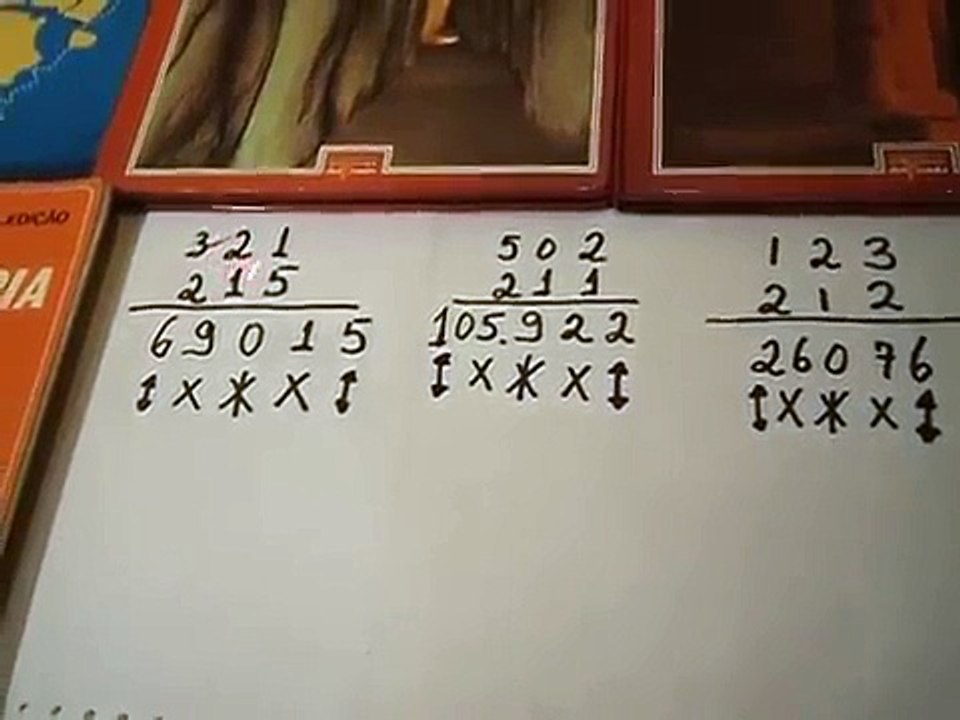 EDIÇÃO
IA
3 2 1
2 1 5
6 9 0 1 5
↕ X ⚹ X ↕
5 0 2
2 1 1
105.9 2 2
↕ X ⚹ X ↕
1 2 3
2 1 2
2 6 0 7 6
↕ X ⚹ X ↕